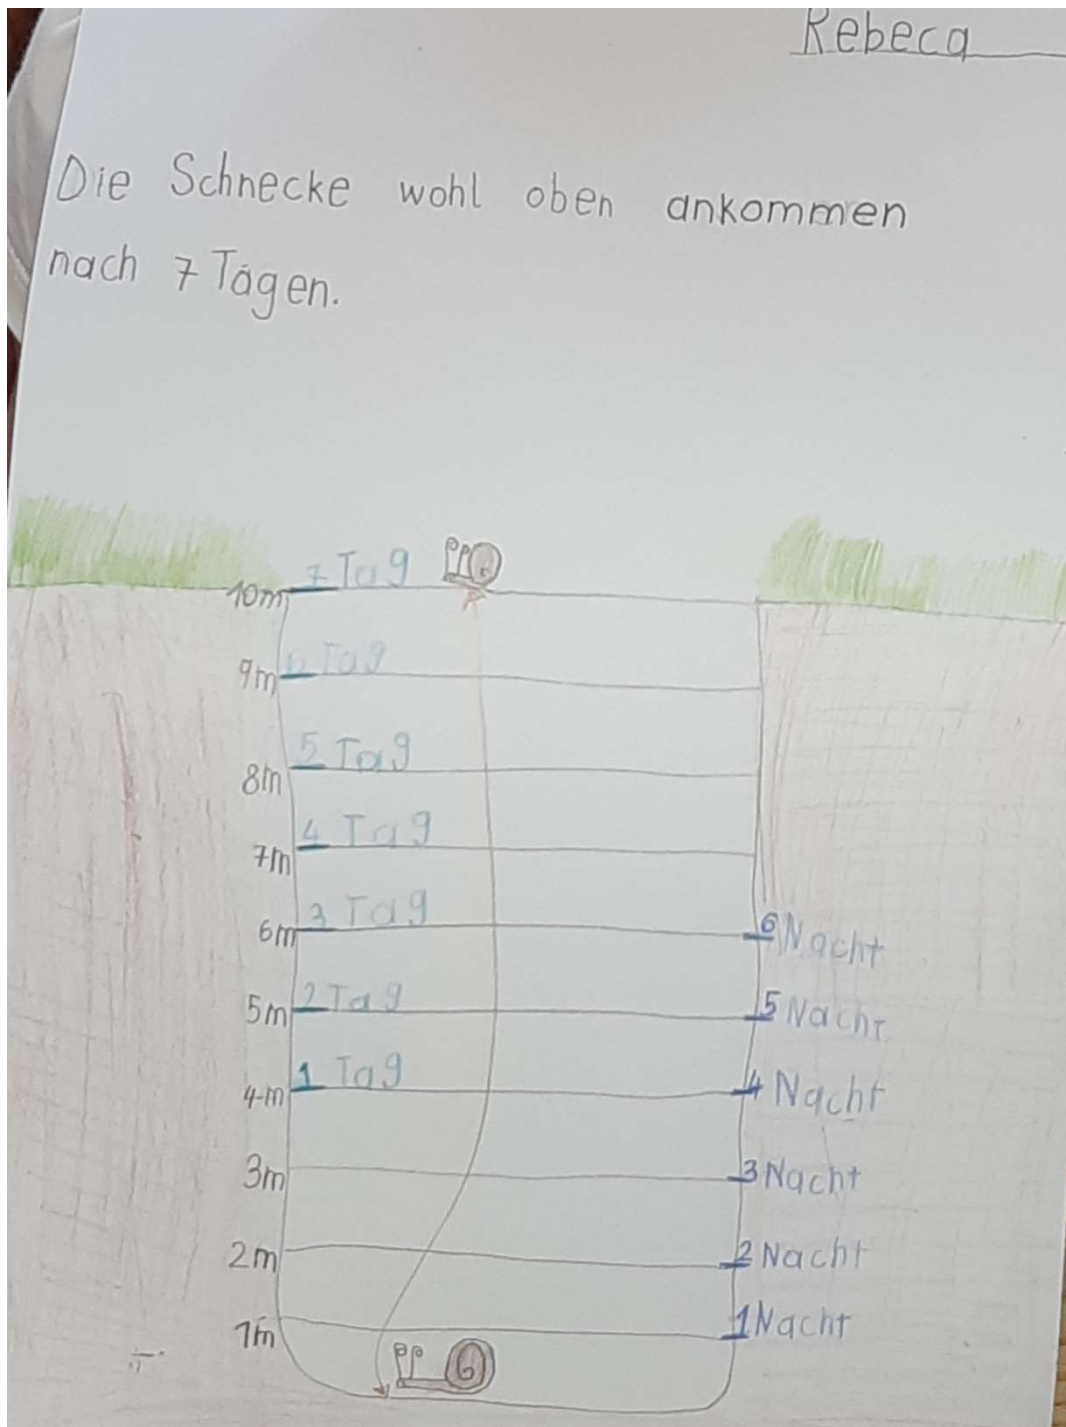 Rebeca
Die Schnecke wohl oben ankommen
nach 7 Tagen.
10m 7 Tag
9m 6 Tag
8m 5 Tag
7m 4 Tag
6m 3 Tag 6 Nacht
5m 2 Tag 5 Nacht
4m 1 Tag 4 Nacht
3m 3 Nacht
2m 2 Nacht
1m 1 Nacht